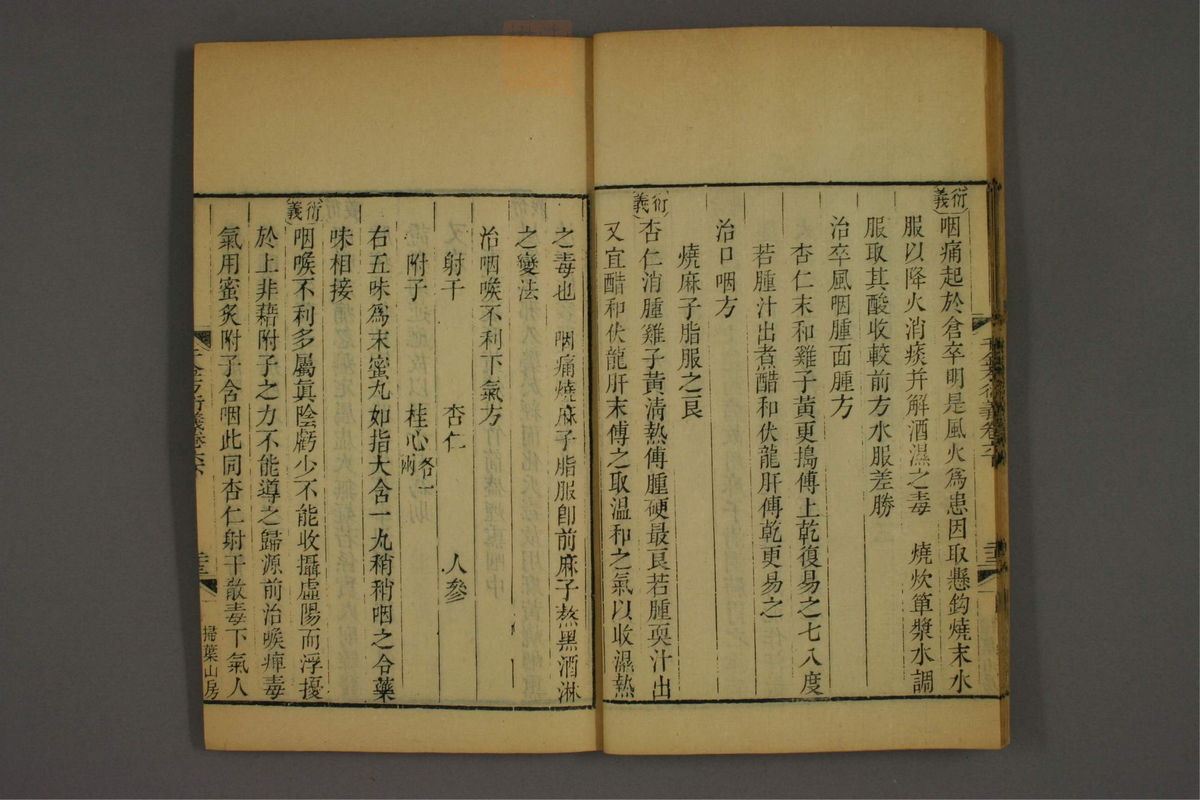 衍義咽痛起於倉卒明是風火爲患因取懸鈎燒末水
服以降火消痰并解酒濕之毒　燒炊箄漿水調
服取其酸收較前方水服差勝
治卒風咽腫面腫方
杏仁末和雞子黃更搗傅上乾復易之七八度
若腫汁出煮醋和伏龍肝傅乾更易之
治口咽方
燒麻子脂服之良
衍義杏仁消腫雞子黃清熱傅腫硬最良若腫耎汁出
又宜醋和伏龍肝末傅之取溫和之氣以收濕熱
之毒也　咽痛燒麻子脂服卽前麻子熬黑酒淋
之變法
治咽喉不利下氣方
又射干　杏仁　人參
附子　桂心各一兩
右五味爲末蜜丸如指大含一丸稍稍咽之令藥
味相接
衍義咽喉不利多屬眞陰虧少不能收攝虛陽而浮擾
於上非藉附子之力不能導之歸源前治喉痺毒
氣用蜜炙附子含咽此同杏仁射干散毒下氣人
千金方衍義卷六下　三十三　掃葉山房